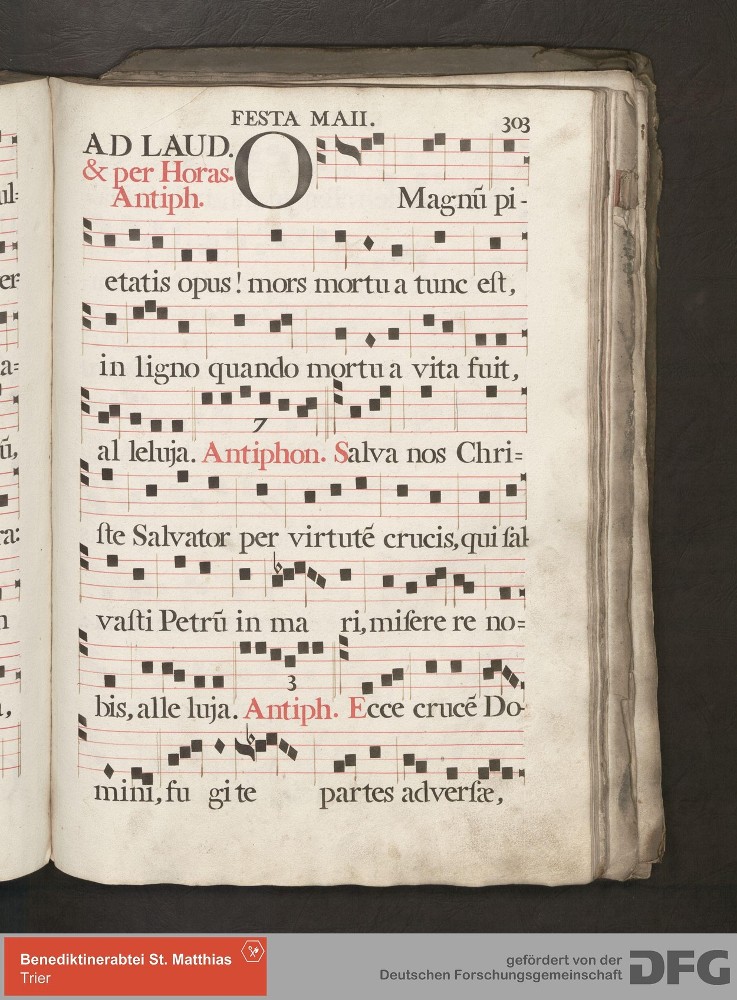 FESTA MAII. 303
AD LAUD.
& per Horas.
Antiph.
O Magnũ pi-
etatis opus! mors mortu a tunc eſt,
in ligno quando mortu a vita fuit,
al leluja. Antiphon. Salva nos Chri=
7
ſte Salvator per virtutẽ crucis, qui ſal-
vaſti Petrũ in ma ri, miſere re no=
bis, alle luja. Antiph. Ecce crucẽ Do-
3
mini, fu gi te partes adverſæ,
ul=
er-
a=
ũ,
ra:
Benediktinerabtei St. Matthias
Trier
gefördert von der
Deutschen Forschungsgemeinschaft
DFG